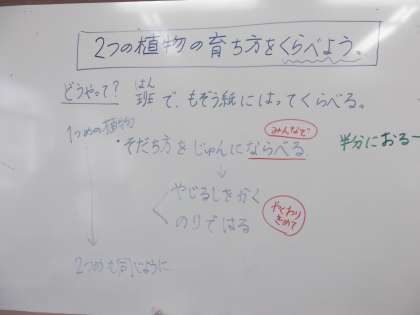 2つの植物の育ち方をくらべよう。
どうやって? 班で、もぞう紙にはってくらべる。
はん
1つめの植物
みんなで
・そだち方をじゅんにならべる
半分におるー
↓
やじるしをかく
のりではる
やくわりをきめて
2つめも同じように